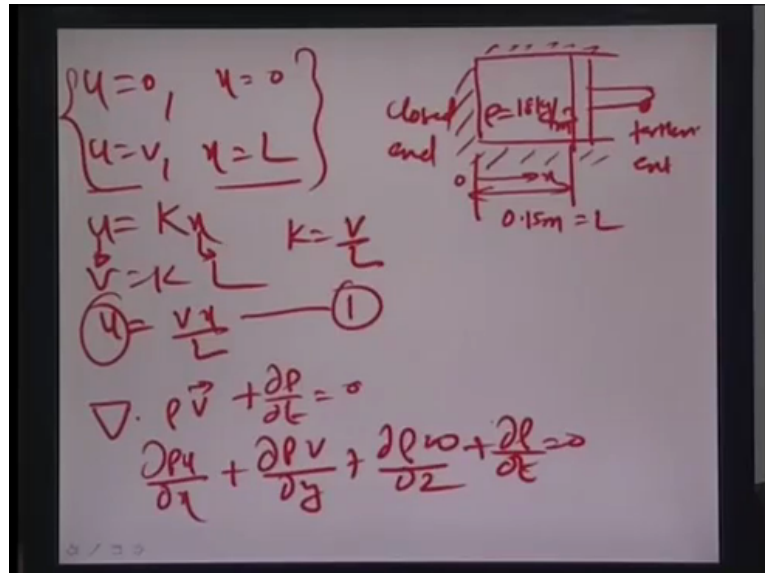 u=0, x=0
u=v, x=L
u=Kx K=v/L
v=K L
u=vx/L ——— 1
∇·ρv⃗ + ∂ρ/∂t = 0
∂ρu/∂x + ∂ρv/∂y + ∂ρw/∂z + ∂ρ/∂t = 0
closed
end
ρ=18kg/m
end
0 x
0.15m = L